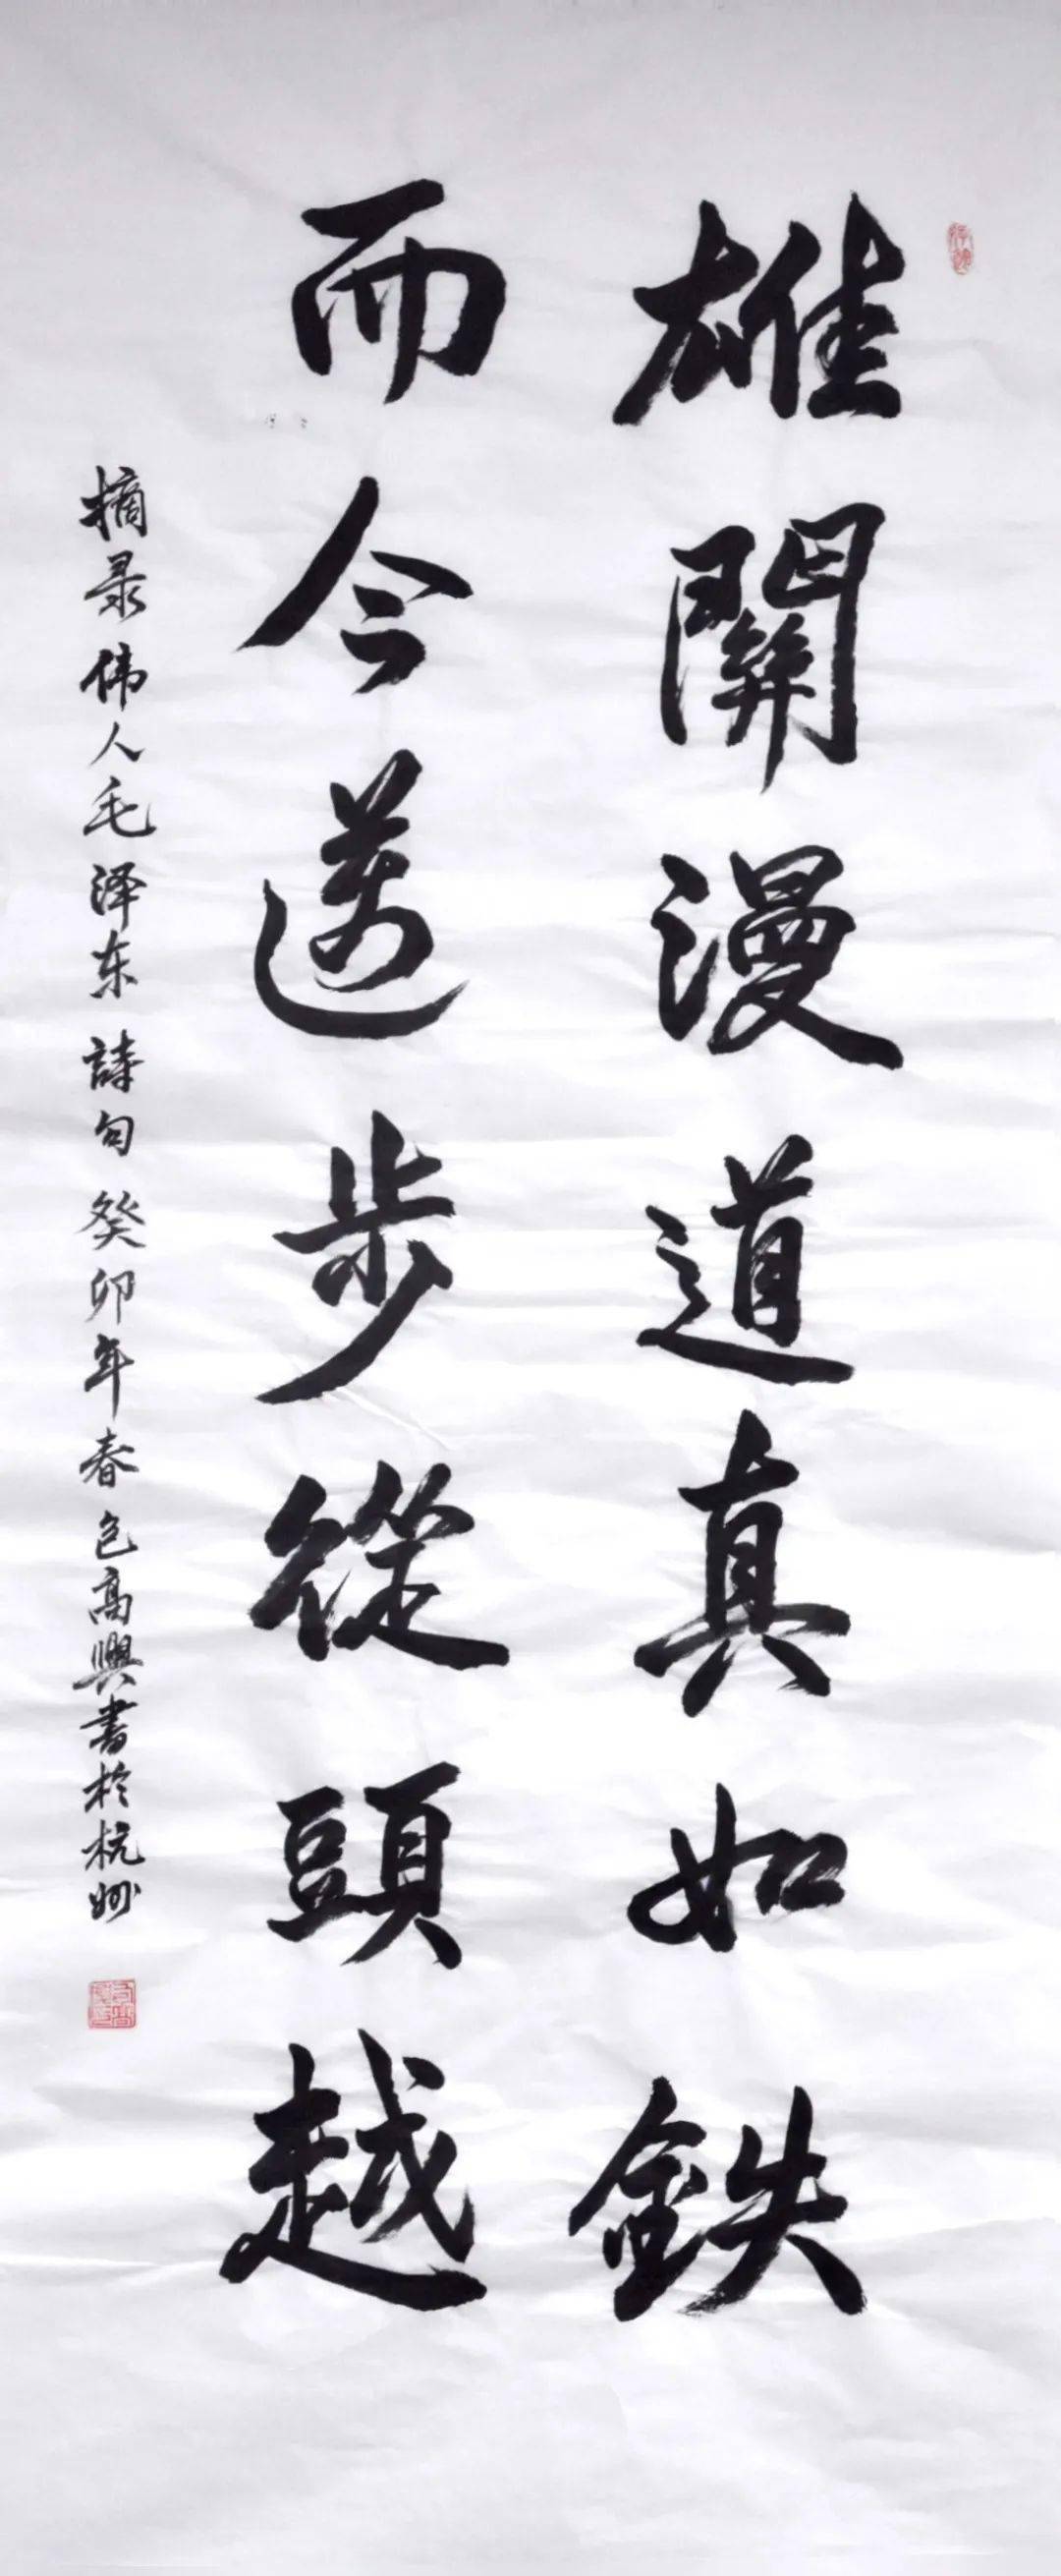 雄關漫道真如鉄
而今邁步從頭越
摘录伟人毛泽东詩句癸卯年春色高興書於杭州